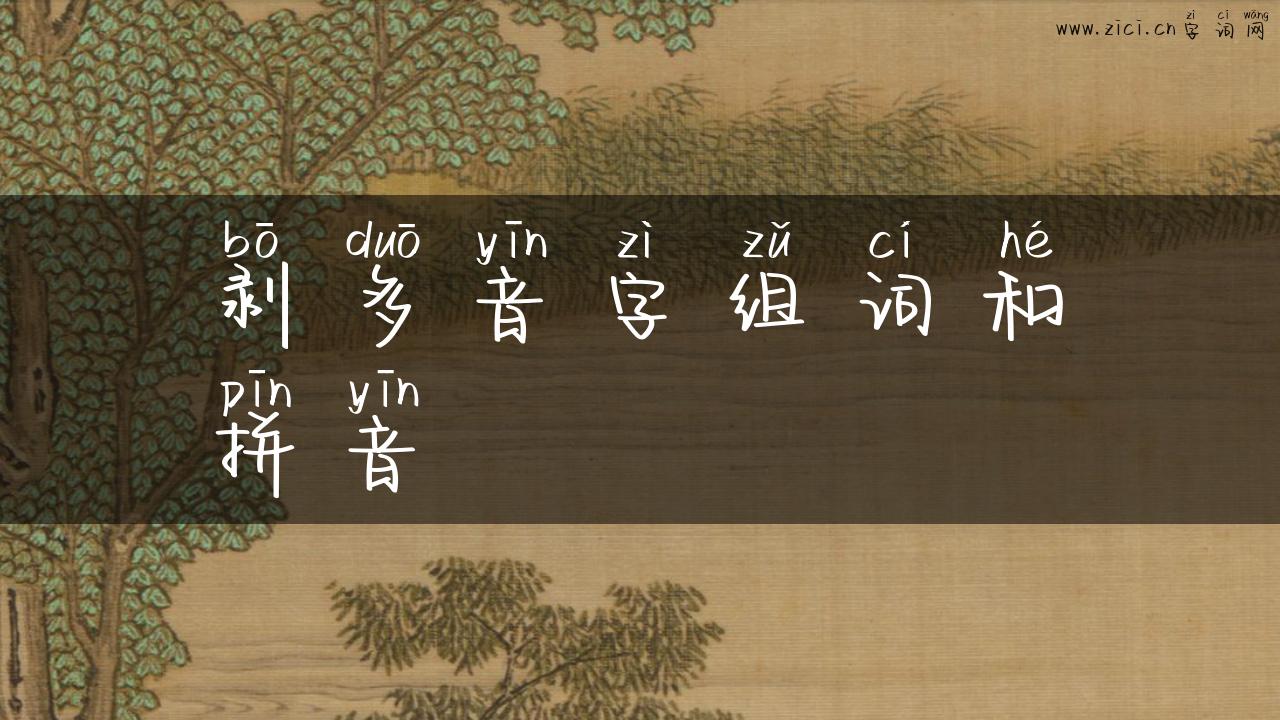 zì cí wǎng
www.zici.cn字词网
bō duō yīn zì zǔ cí hé
剥多音字组词和
pīn yīn
拼音